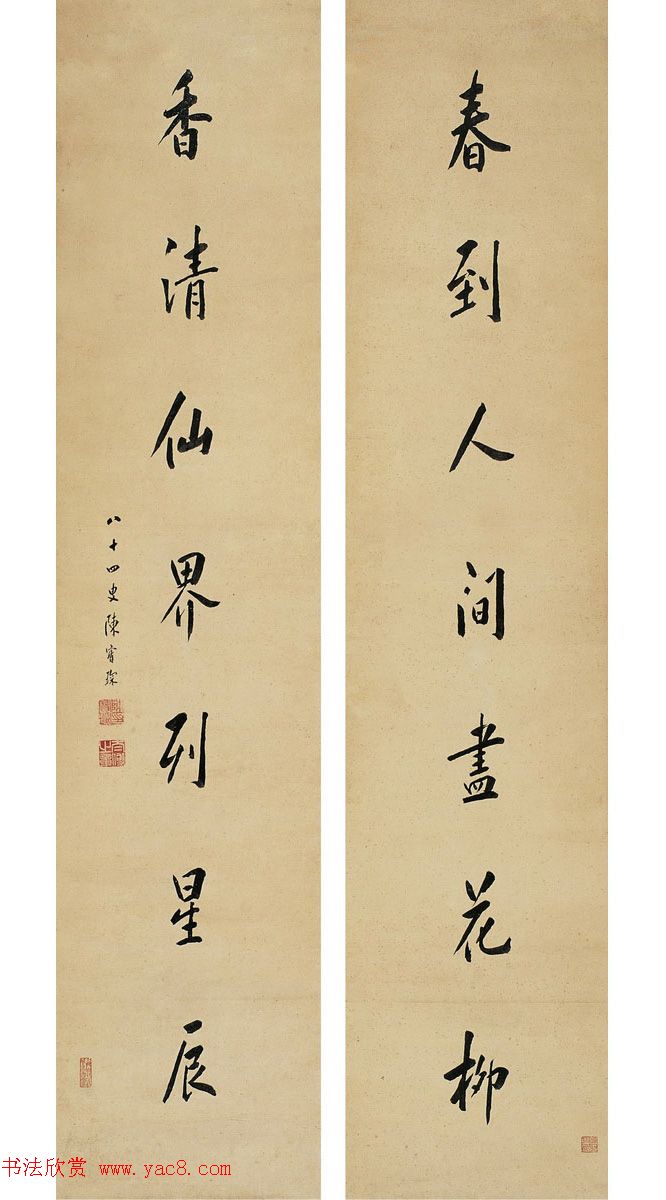 春到人間盡花柳
香清仙界列星辰
八十四叟陳寶琛
书法欣赏 www.yac8.com